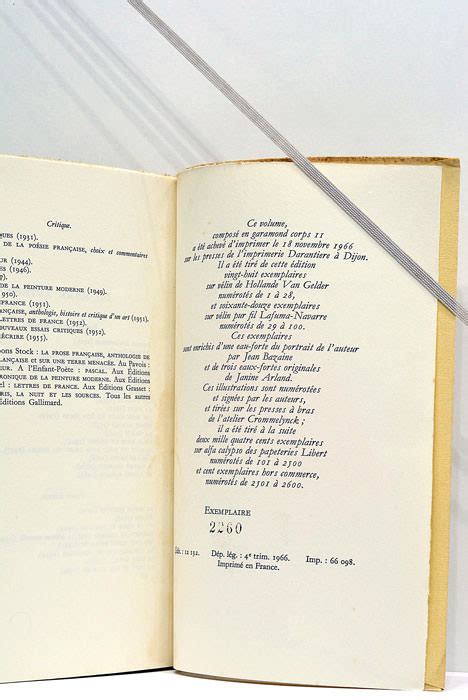 Critique.
QUES (1931).
DE LA POÉSIE FRANÇAISE, choix et commentaires
UR (1944).
(1946).
7).
DE LA PEINTURE MODERNE (1949).
1950).
FRANCE (1951).
NÇAISE, anthologie, histoire et critique d'un art (1951).
LETTRES DE FRANCE (1951).
OUVEAUX ESSAIS CRITIQUES (1952).
ÉCRIRE (1955).
ons Stock : LA PROSE FRANÇAISE, ANTHOLOGIE DE
ANÇAISE ET SUR UNE TERRE MENACÉE. Au Pavois :
EUR. A l'Enfant-Poète : PASCAL. Aux Éditions
RONIQUE DE LA PEINTURE MODERNE. Aux Éditions
el : LETTRES DE FRANCE. Aux Éditions Grasset :
RIS, LA NUIT ET LES SOURCES. Tous les autres
Éditions Gallimard.
Ce volume,
composé en garamond corps 11
a été achevé d'imprimer le 18 novembre 1966
sur les presses de l'imprimerie Darantiere à Dijon.
Il a été tiré de cette édition
vingt-huit exemplaires
sur vélin de Hollande Van Gelder
numérotés de 1 à 28,
et soixante-douze exemplaires
sur vélin pur fil Lafuma-Navarre
numérotés de 29 à 100.
Ces exemplaires
sont enrichis d'une eau-forte du portrait de l'auteur
par Jean Bazaine
et de trois eaux-fortes originales
de Janine Arland.
Ces illustrations sont numérotées
et signées par les auteurs,
et tirées sur les presses à bras
de l'atelier Crommelynck ;
il a été tiré à la suite
deux mille quatre cents exemplaires
sur alfa calypso des papeteries Libert
numérotés de 101 à 2500
et cent exemplaires hors commerce,
numérotés de 2501 à 2600.
EXEMPLAIRE
2260
Éd. : 12 192. Dép. lég. : 4e trim. 1966. Imp. : 66 098.
Imprimé en France.